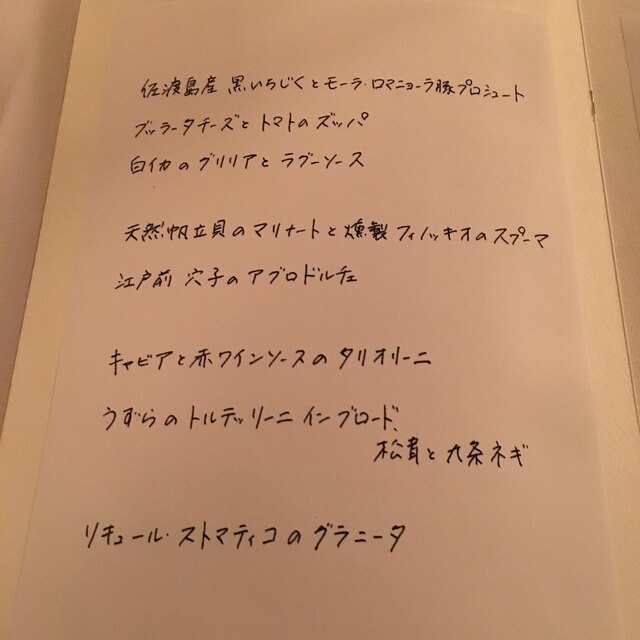 佐渡島産 黒いちじくとモーラ・ロマニョーラ豚プロシュート
ブッラータチーズとトマトのズッパ
白イカのグリリアとラグーソース
天然帆立貝のマリナートと燻製フィノッキオのスプーマ
江戸前 穴子のアグロドルチェ
キャビアと赤ワインソースのタリオリーニ
うずらのトルテッリーニ インブロード、
松茸と九条ネギ
リキュール・ストマティコのグラニータ